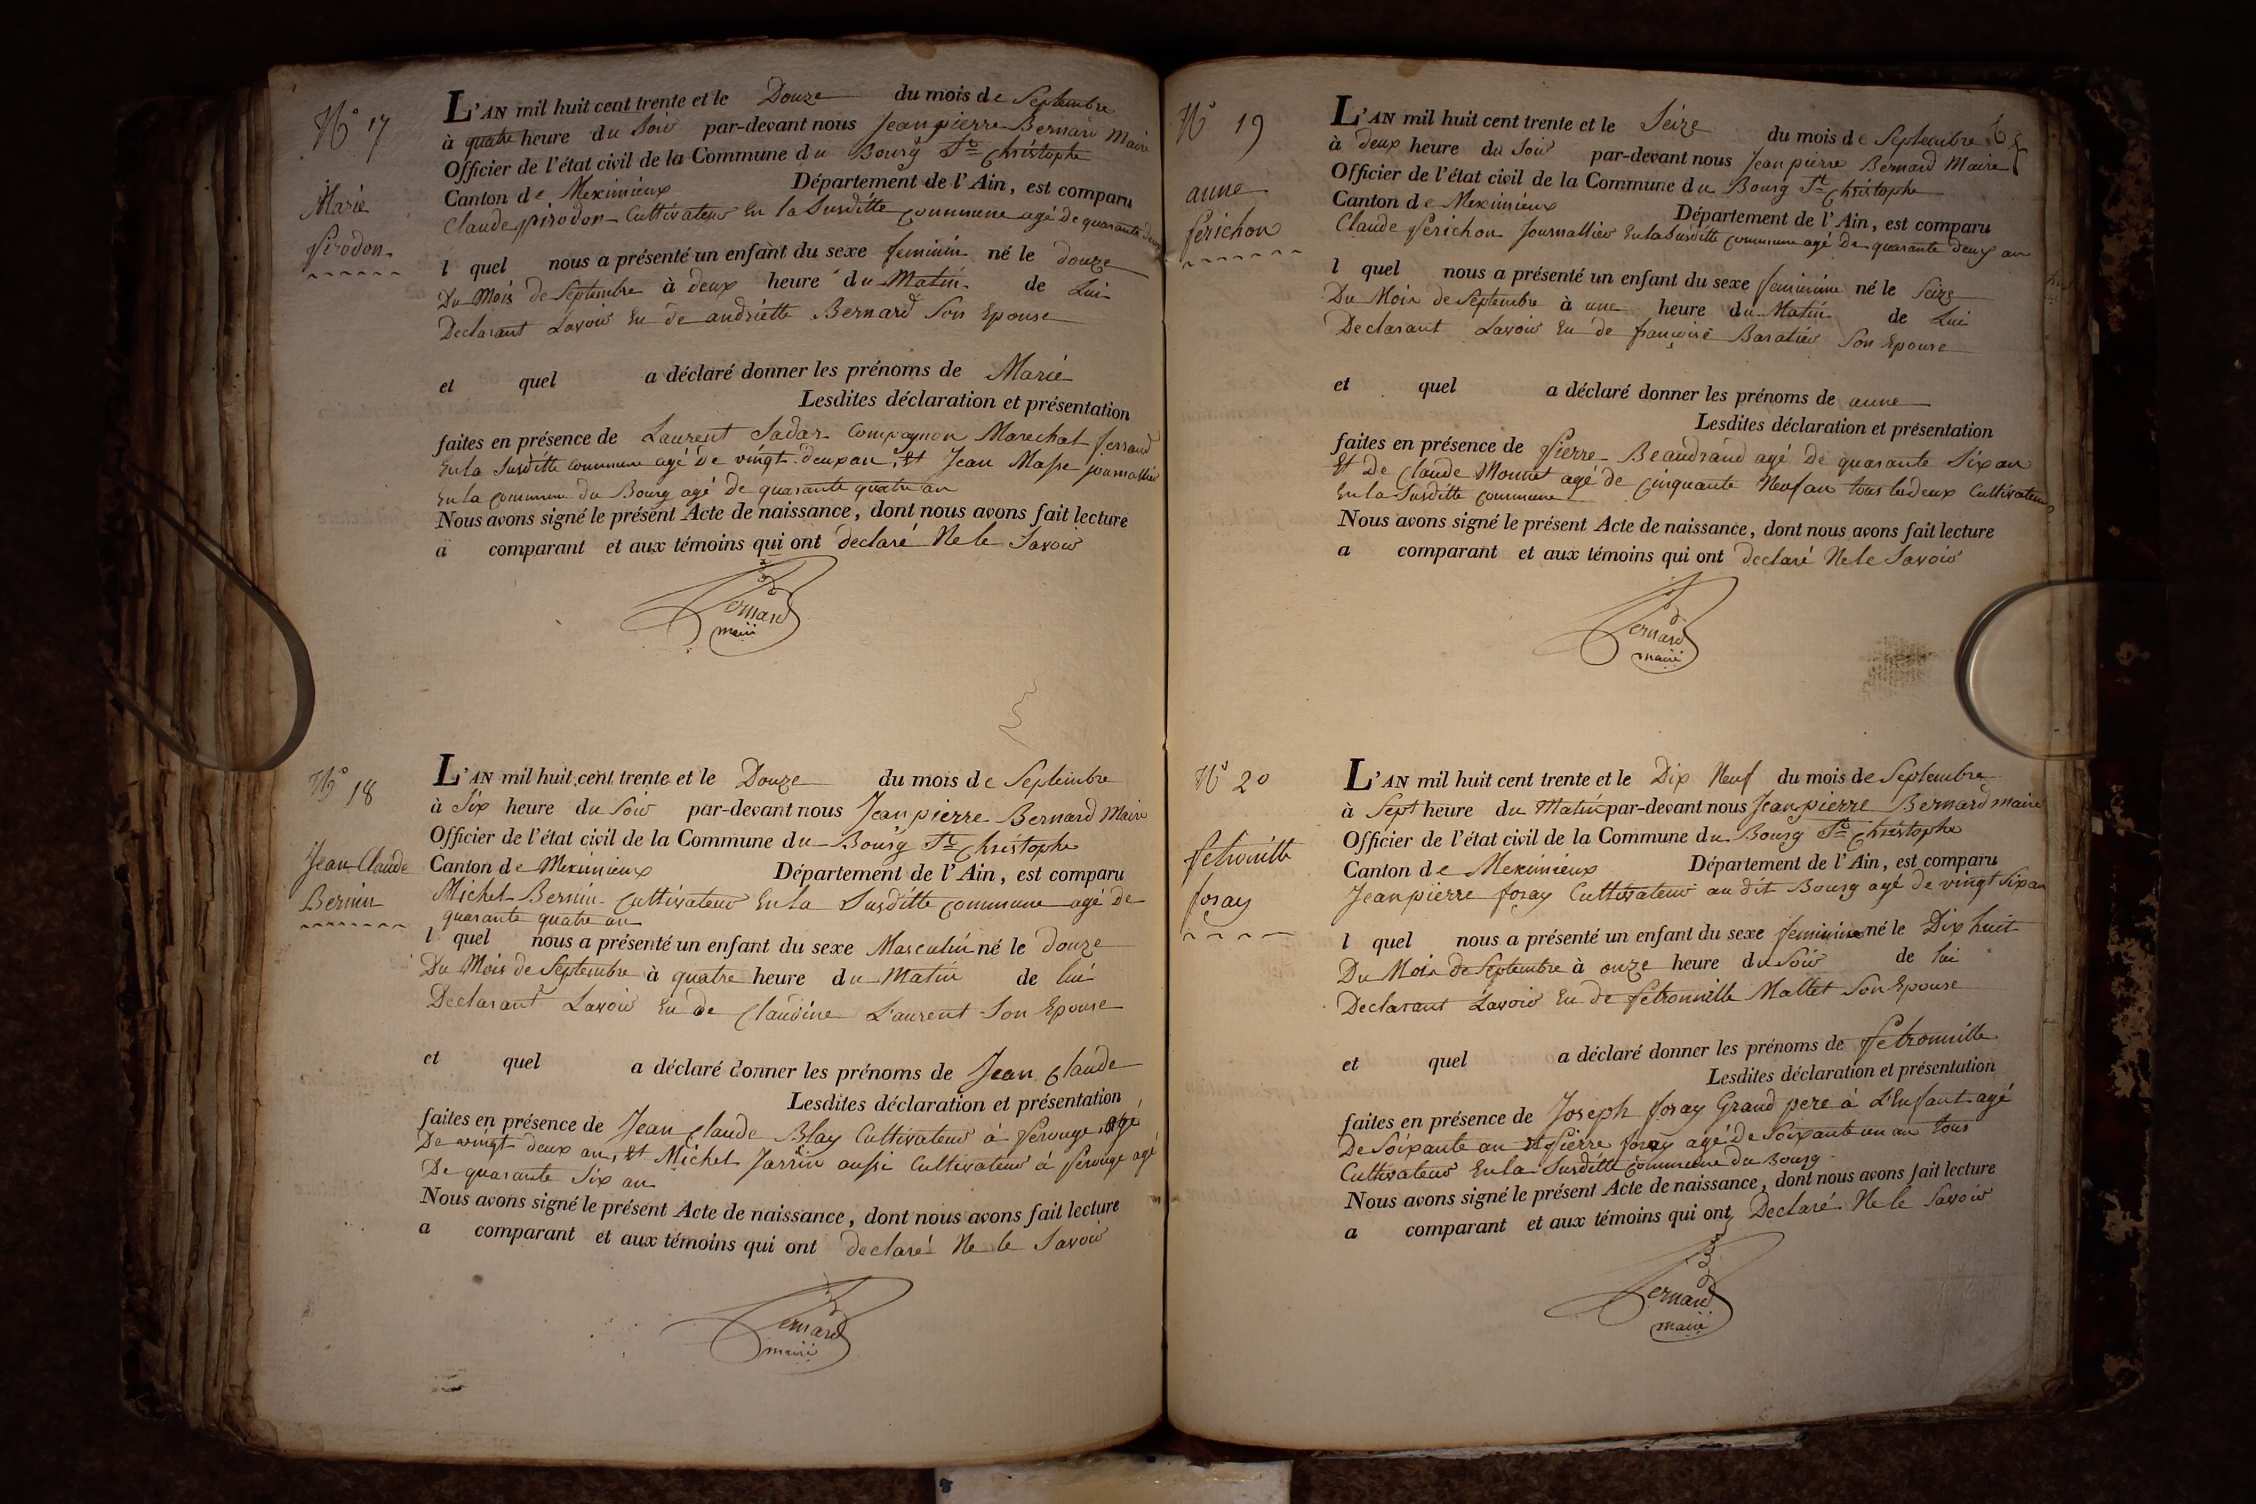 N° 17
Marie
Pirodon
L'AN mil huit cent trente et le Douze du mois de Septembre
à quatre heure du Soir par-devant nous Jeanpierre Bernard Maire
Officier de l'état civil de la Commune du Bourg St Christophe
Canton de Meximieux Département de l'Ain, est comparu
Claude pirodon Cultivateur En la Susditte commune agé de quarante deux
l quel nous a présenté un enfant du sexe feminin né le douze
Du Mois de Septembre à deux heure du Matin de Lui
Declarant Lavoir Eu de andriette Bernard Son Epouse
et quel a déclaré donner les prénoms de Marie
Lesdites déclaration et présentation
faites en présence de Laurent Sadar Compagnon Marechal ferrand
En la Susditte commune agé De vingt deux an, Et Jean Masse journallier
En la commune du Bourg agé de quarante quatre an
Nous avons signé le présent Acte de naissance, dont nous avons fait lecture
a comparant et aux témoins qui ont declaré Ne le Savoir
Bernard
maire
N° 18
Jean Claude
Bernin
L'AN mil huit cent trente et le Douze du mois de Septembre
à Six heure du Soir par-devant nous Jeanpierre Bernard Maire
Officier de l'état civil de la Commune du Bourg St Christophe
Canton de Meximieux Département de l'Ain, est comparu
Michel Bernin Cultivateur En la Susditte commune agé de
quarante quatre an
l quel nous a présenté un enfant du sexe Masculin né le douze
Du Mois de Septembre à quatre heure du Matin de lui
Declarant Lavoir Eu de Claudine Laurent Son Epouse
et quel a déclaré donner les prénoms de Jean Claude
Lesdites déclaration et présentation
faites en présence de Jean Claude Blay Cultivateur à Perouge agé
De vingt deux an, Et Michel Jarrin aussi Cultivateur à Perouge agé
De quarante Six an
Nous avons signé le présent Acte de naissance, dont nous avons fait lecture
a comparant et aux témoins qui ont declaré Ne le Savoir
Bernard
maire
N° 19
anne
Perichon
L'AN mil huit cent trente et le Seize du mois de Septembre
à deux heure du Soir par-devant nous Jean pierre Bernard Maire
Officier de l'état civil de la Commune du Bourg St Christophe
Canton de Meximieux Département de l'Ain, est comparu
Claude Perichon Journallier En la Susditte commune agé De quarante deux an
l quel nous a présenté un enfant du sexe feminine né le Seize
Du Mois de Septembre à une heure du Matin de Lui
Declarant Lavoir Eu de françoise Baratier Son Epouse
et quel a déclaré donner les prénoms de anne
Lesdites déclaration et présentation
faites en présence de Pierre Beaudrand agé De quarante Six an
Et De Claude Monnet agé de Cinquante Neuf an tous les deux Cultivateur
En la Susditte commune
Nous avons signé le présent Acte de naissance, dont nous avons fait lecture
a comparant et aux témoins qui ont declaré Ne le Savoir
Bernard
maire
N° 20
Petronille
foray
L'AN mil huit cent trente et le Dix Neuf du mois de Septembre
à Sept heure du Matin par-devant nous Jeanpierre Bernard maire
Officier de l'état civil de la Commune du Bourg St Christophe
Canton de Meximieux Département de l'Ain, est comparu
Jeanpierre foray Cultivateur au dit Bourg agé de vingt Six an
l quel nous a présenté un enfant du sexe feminine né le Dix huit
Du Mois de Septembre à onze heure du Soir de lui
Declarant Lavoir Eu de Petronnille Mallet Son Epouse
et quel a déclaré donner les prénoms de Petronnille
Lesdites déclaration et présentation
faites en présence de Joseph foray Grand pere à L'Enfant agé
De Soixante an Et Pierre foray agé De Soixante un an tous
Cultivateur En la Susditte commune du Bourg
Nous avons signé le présent Acte de naissance, dont nous avons fait lecture
a comparant et aux témoins qui ont Declaré Ne le Savoir
Bernard
maire